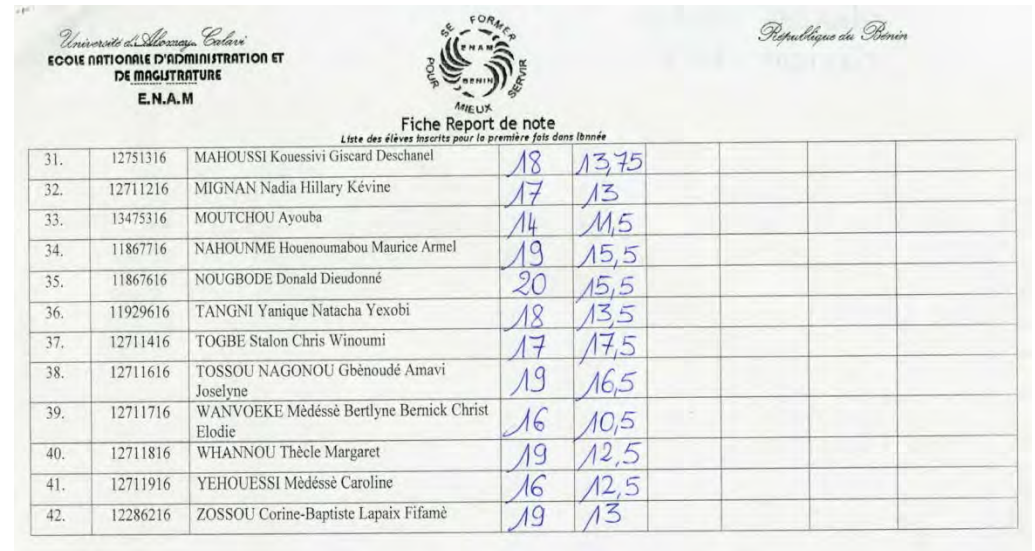 Université d'Abomey-Calavi
ECOLE NATIONALE D'ADMINISTRATION ET
DE MAGISTRATURE
E.N.A.M
SE FORMER
POUR
MIEUX
SERVIR
ENAM
BENIN
République du Bénin
Fiche Report de note
Liste des élèves inscrits pour la première fois dans lbnnée
31. 12751316 MAHOUSSI Kouessivi Giscard Deschanel 18 13,75
32. 12711216 MIGNAN Nadia Hillary Kévine 17 13
33. 13475316 MOUTCHOU Ayouba 14 11,5
34. 11867716 NAHOUNME Houenoumabou Maurice Armel 19 15,5
35. 11867616 NOUGBODE Donald Dieudonné 20 15,5
36. 11929616 TANGNI Yanique Natacha Yexobi 18 13,5
37. 12711416 TOGBE Stalon Chris Winoumi 17 17,5
38. 12711616 TOSSOU NAGONOU Gbènoudé Amavi 19 16,5
Joselyne
39. 12711716 WANVOEKE Mèdéssè Bertlyne Bernick Christ 16 10,5
Elodie
40. 12711816 WHANNOU Thècle Margaret 19 12,5
41. 12711916 YEHOUESSI Mèdéssè Caroline 16 12,5
42. 12286216 ZOSSOU Corine-Baptiste Lapaix Fifamè 19 13